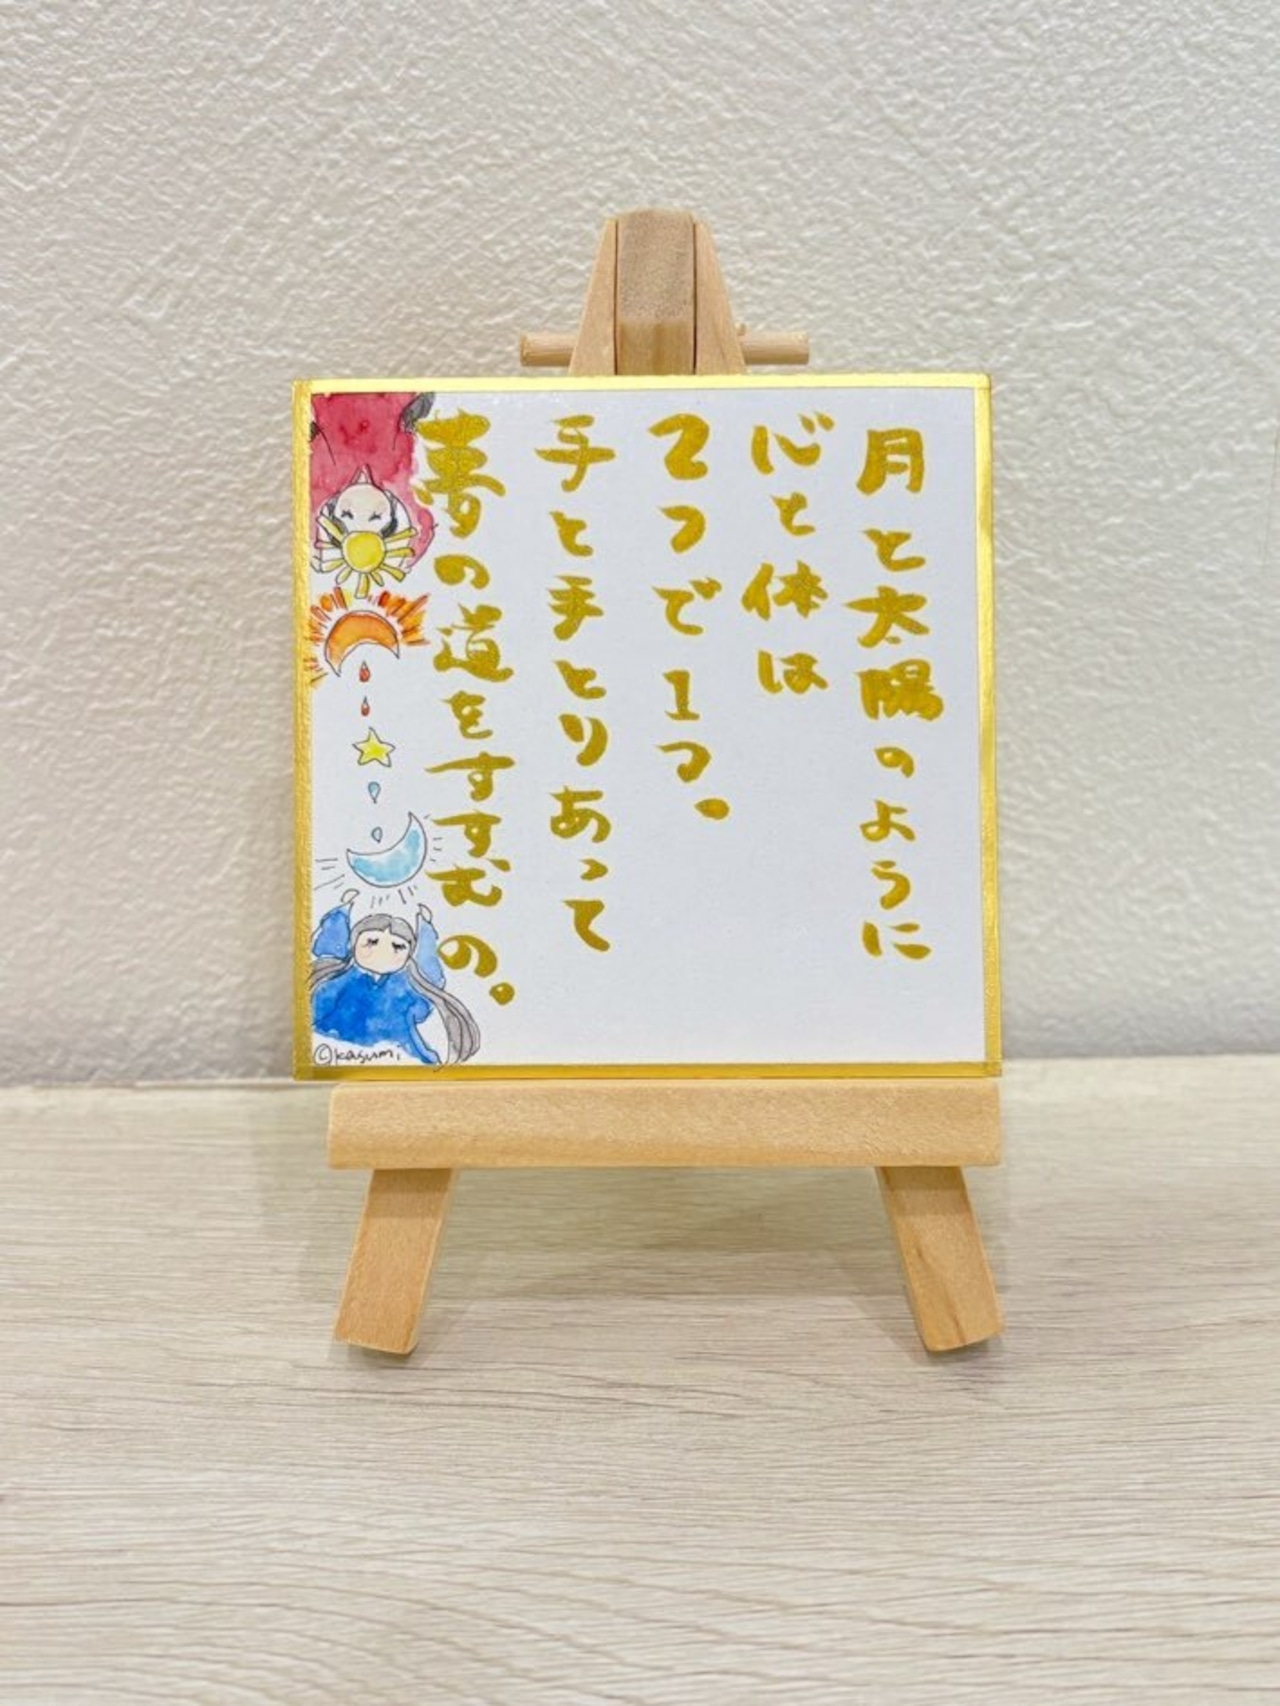 月と太陽のように
心と体は
2つで1つ。
手と手とりあって
夢の道をすすむの。
©kasumi